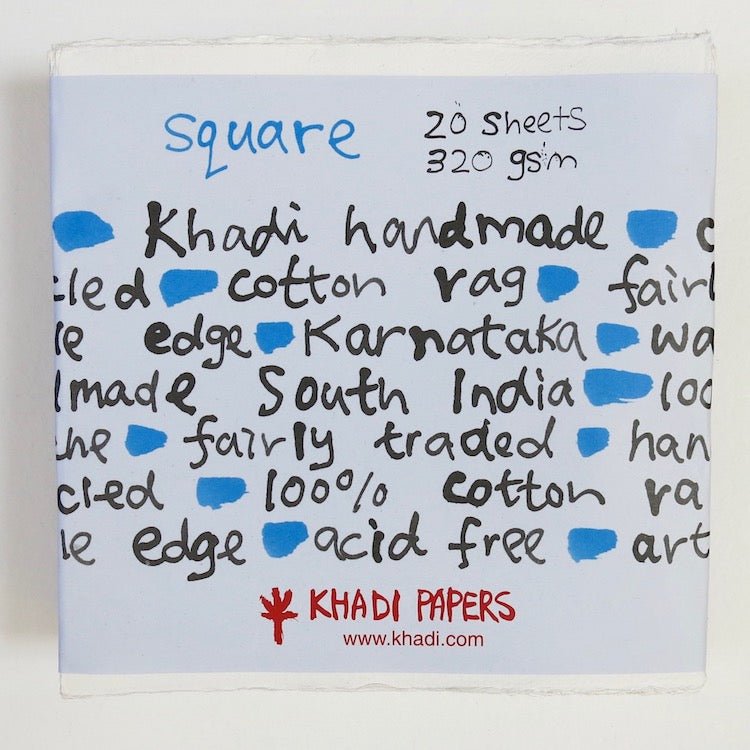 square
20 sheets
320 gsm
Khadi handmade
cled cotton rag fairl
edge Karnataka wa
made South India 100
he fairly traded han
cled 100% cotton ra
e edge acid free art
KHADI PAPERS
www.khadi.com